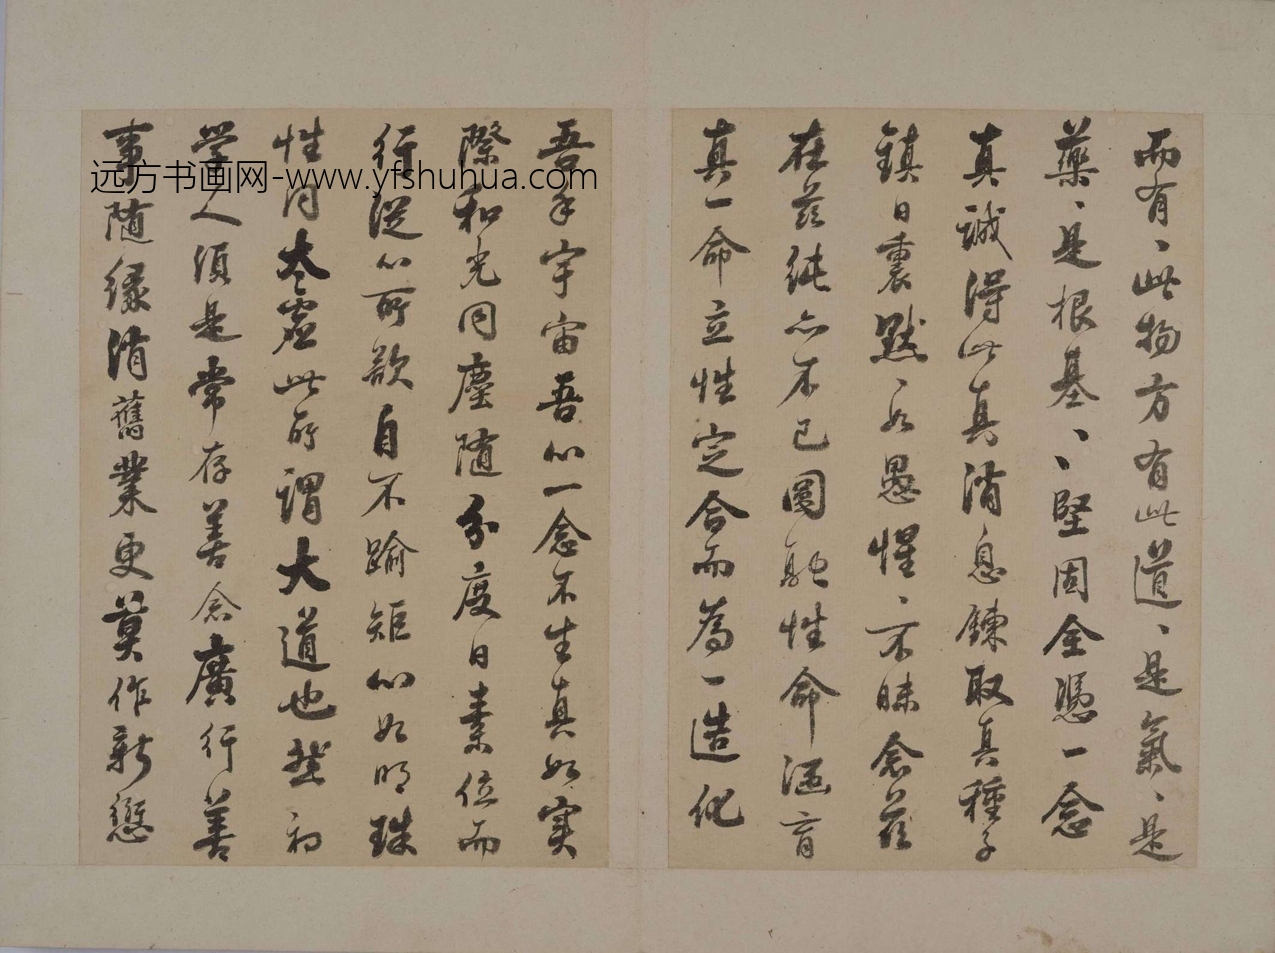 而有、此物方有此道、是氣、是
藥、是根基、、堅固全憑一念
真誠得此真消息鍊取真種子
鎮日裏默、如愚惺、不昧念茲
在茲純亦不已圓融性命涵育
真一命立性定合而為一造化
吾手宇宙吾心一念不生真如實
際和光同塵隨分度日素位而
行從心所欲自不踰矩心如明珠
性同太虛此所謂大道也然初
學人須是常存善念廣行善
事隨緣消舊業更莫作新愆
远方书画网-www.yfshuhua.com